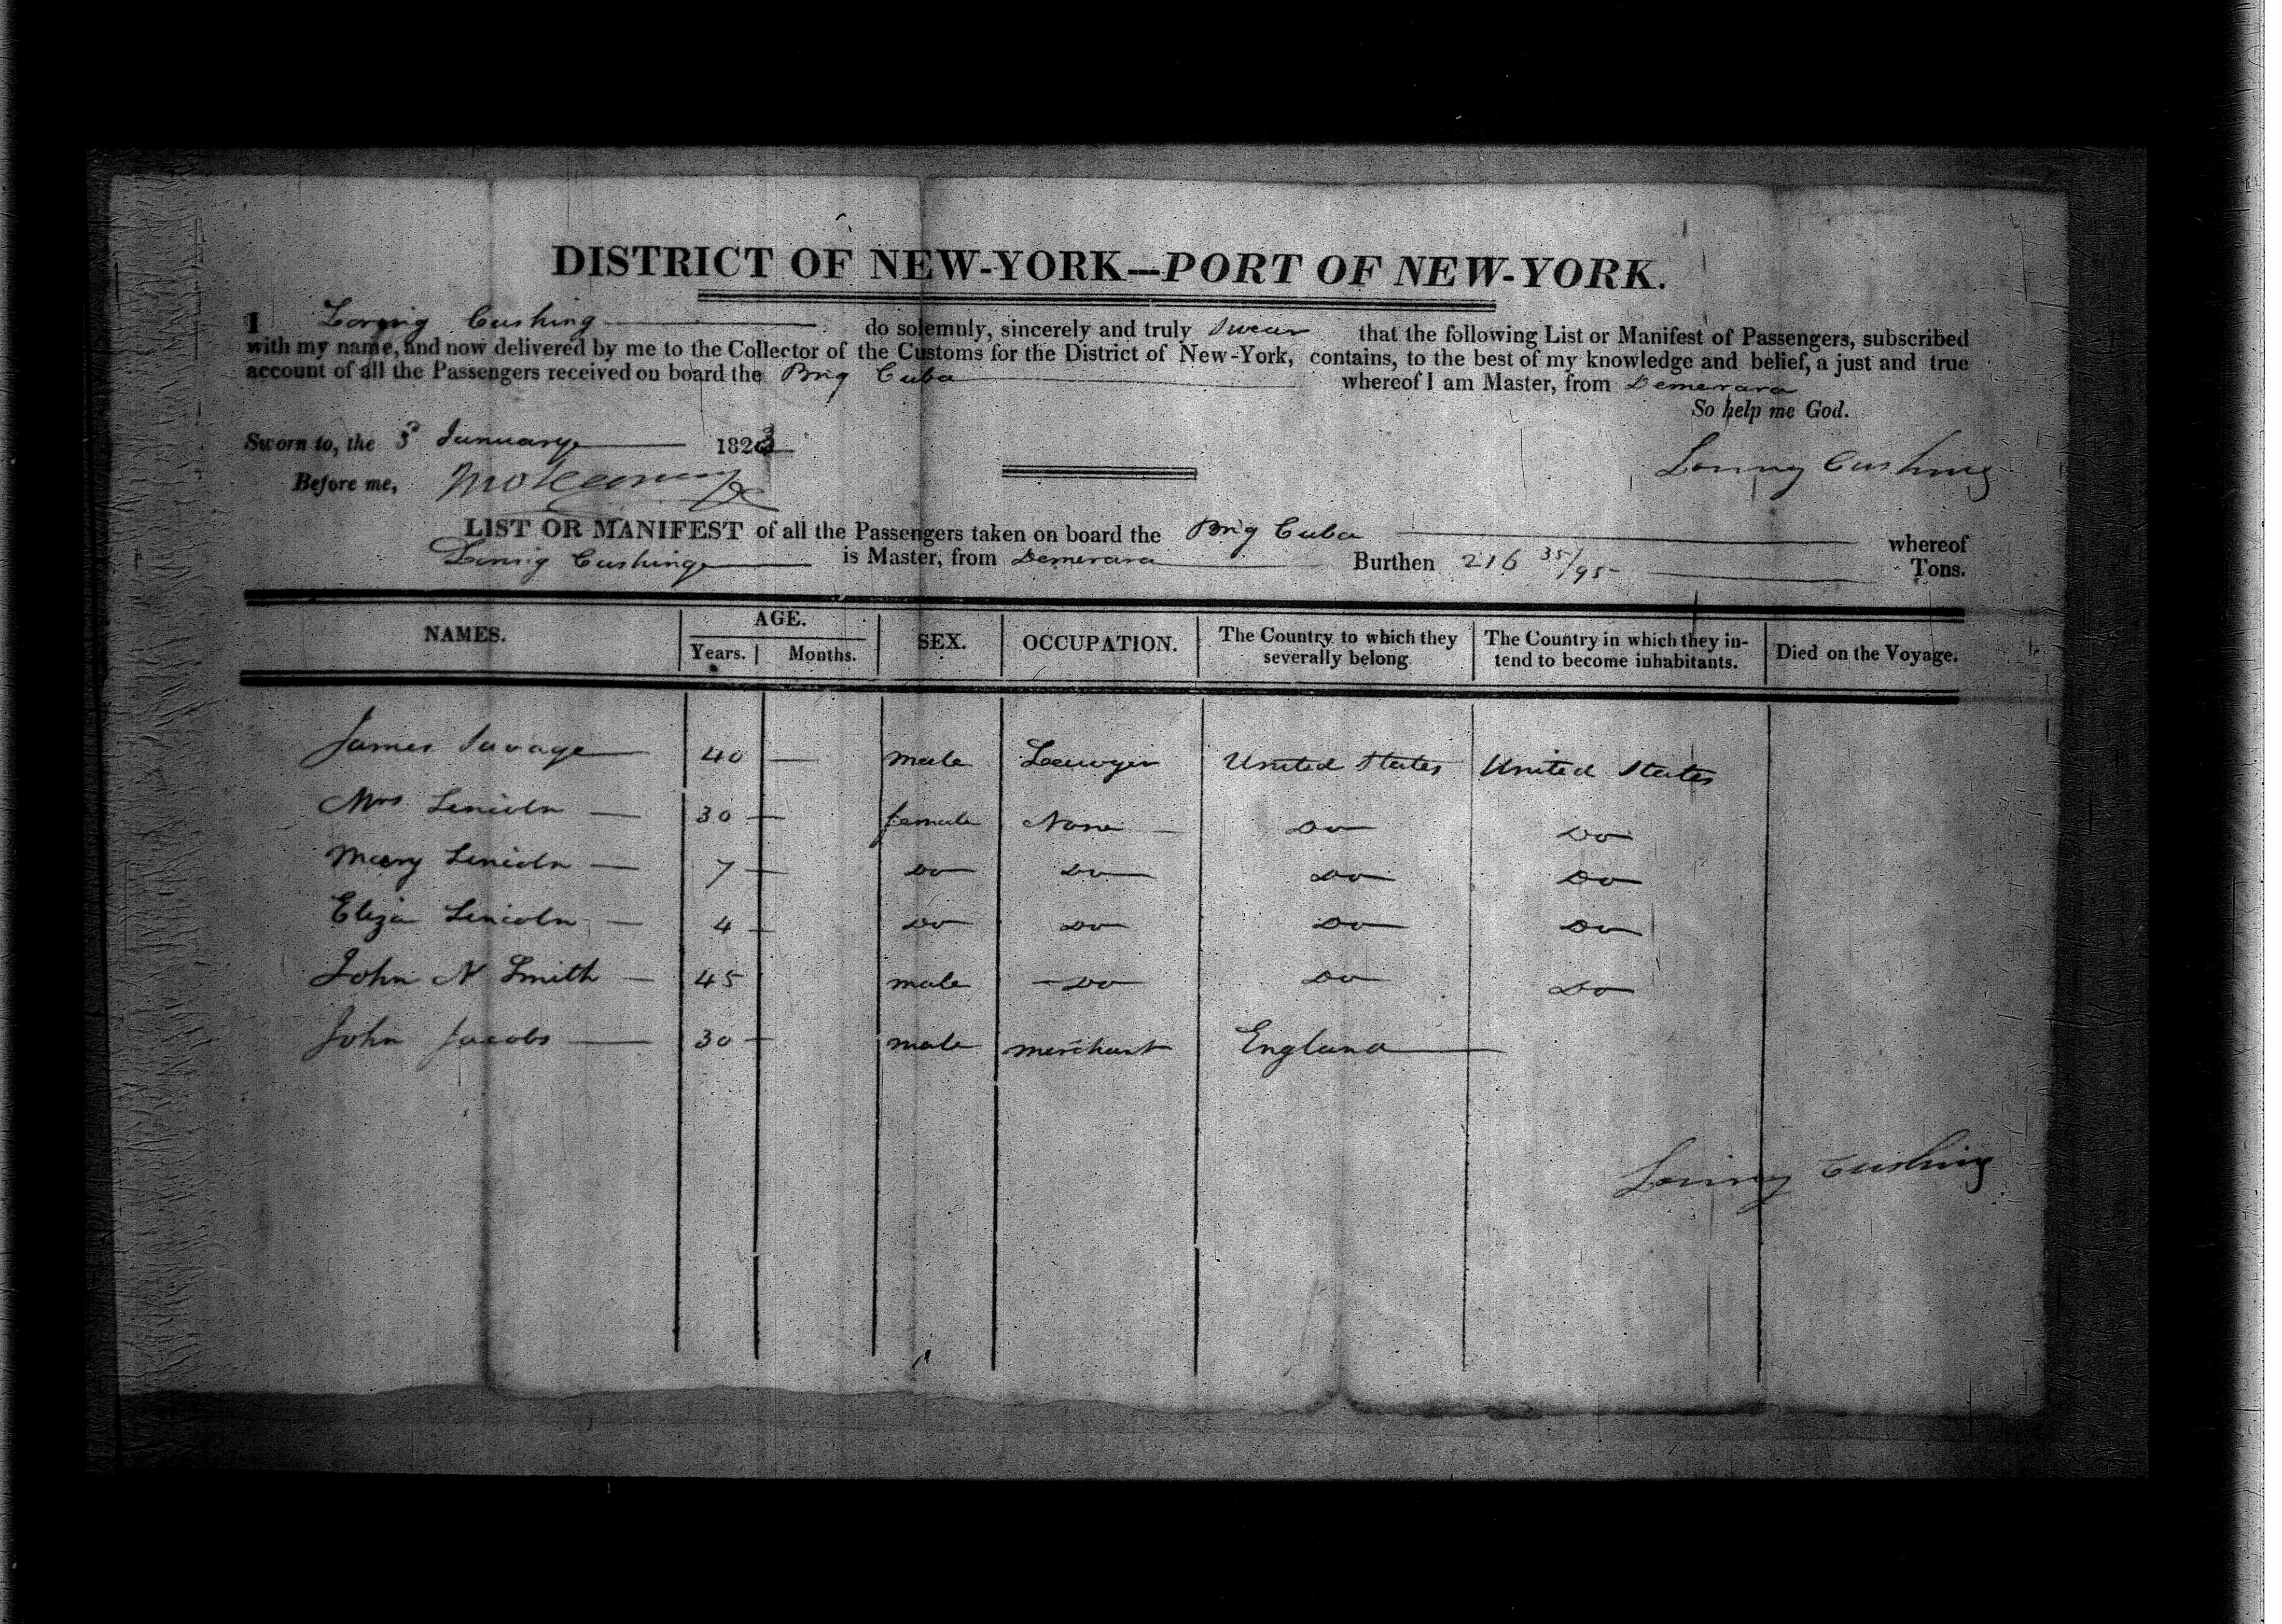 DISTRICT OF NEW-YORK—PORT OF NEW-YORK.
I Loring Cushing do solemnly, sincerely and truly Swear that the following List or Manifest of Passengers, subscribed
with my name, and now delivered by me to the Collector of the Customs for the District of New-York, contains, to the best of my knowledge and belief, a just and true
account of all the Passengers received on board the Brig Cuba whereof I am Master, from Demerara
So help me God.
Sworn to, the 3d January 1823
Loring Cushing
Before me,
LIST OR MANIFEST of all the Passengers taken on board the Brig Cuba whereof
Loring Cushing is Master, from Demerara Burthen 216 35/95 Tons.
NAMES. AGE. Years. Months. SEX. OCCUPATION. The Country to which they severally belong The Country in which they intend to become inhabitants. Died on the Voyage.
James Savage 40 — male Lawyer United States United States
Mrs Lincoln — 30 — female None — Do Do
Mary Lincoln — 7 — Do Do Do Do
Eliza Lincoln — 4 — Do Do Do Do
John N Smith — 45 male Do Do Do
John Jacobs — 30 — male merchant England
Loring Cushing